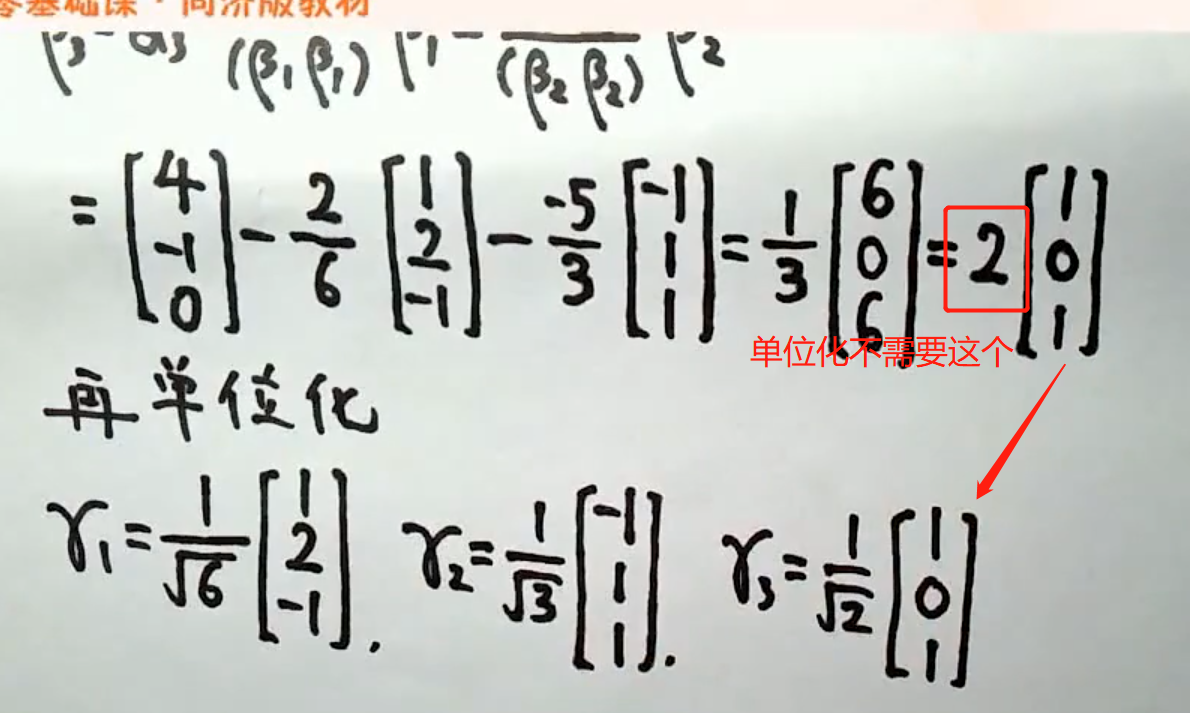 零基础课·同济版教材
β₃=α₃ (β₁β₁) β₁ - (β₂β₂) β₂
= [4 -1 0] - 2/6 [1 2 -1] - -5/3 [-1 1 1] = 1/3 [6 0 6] = 2 [1 0 1]
单位化不需要这个
再单位化
γ₁ = 1/√6 [1 2 -1]. γ₂ = 1/√3 [-1 1 1]. γ₃ = 1/√2 [1 0 1]